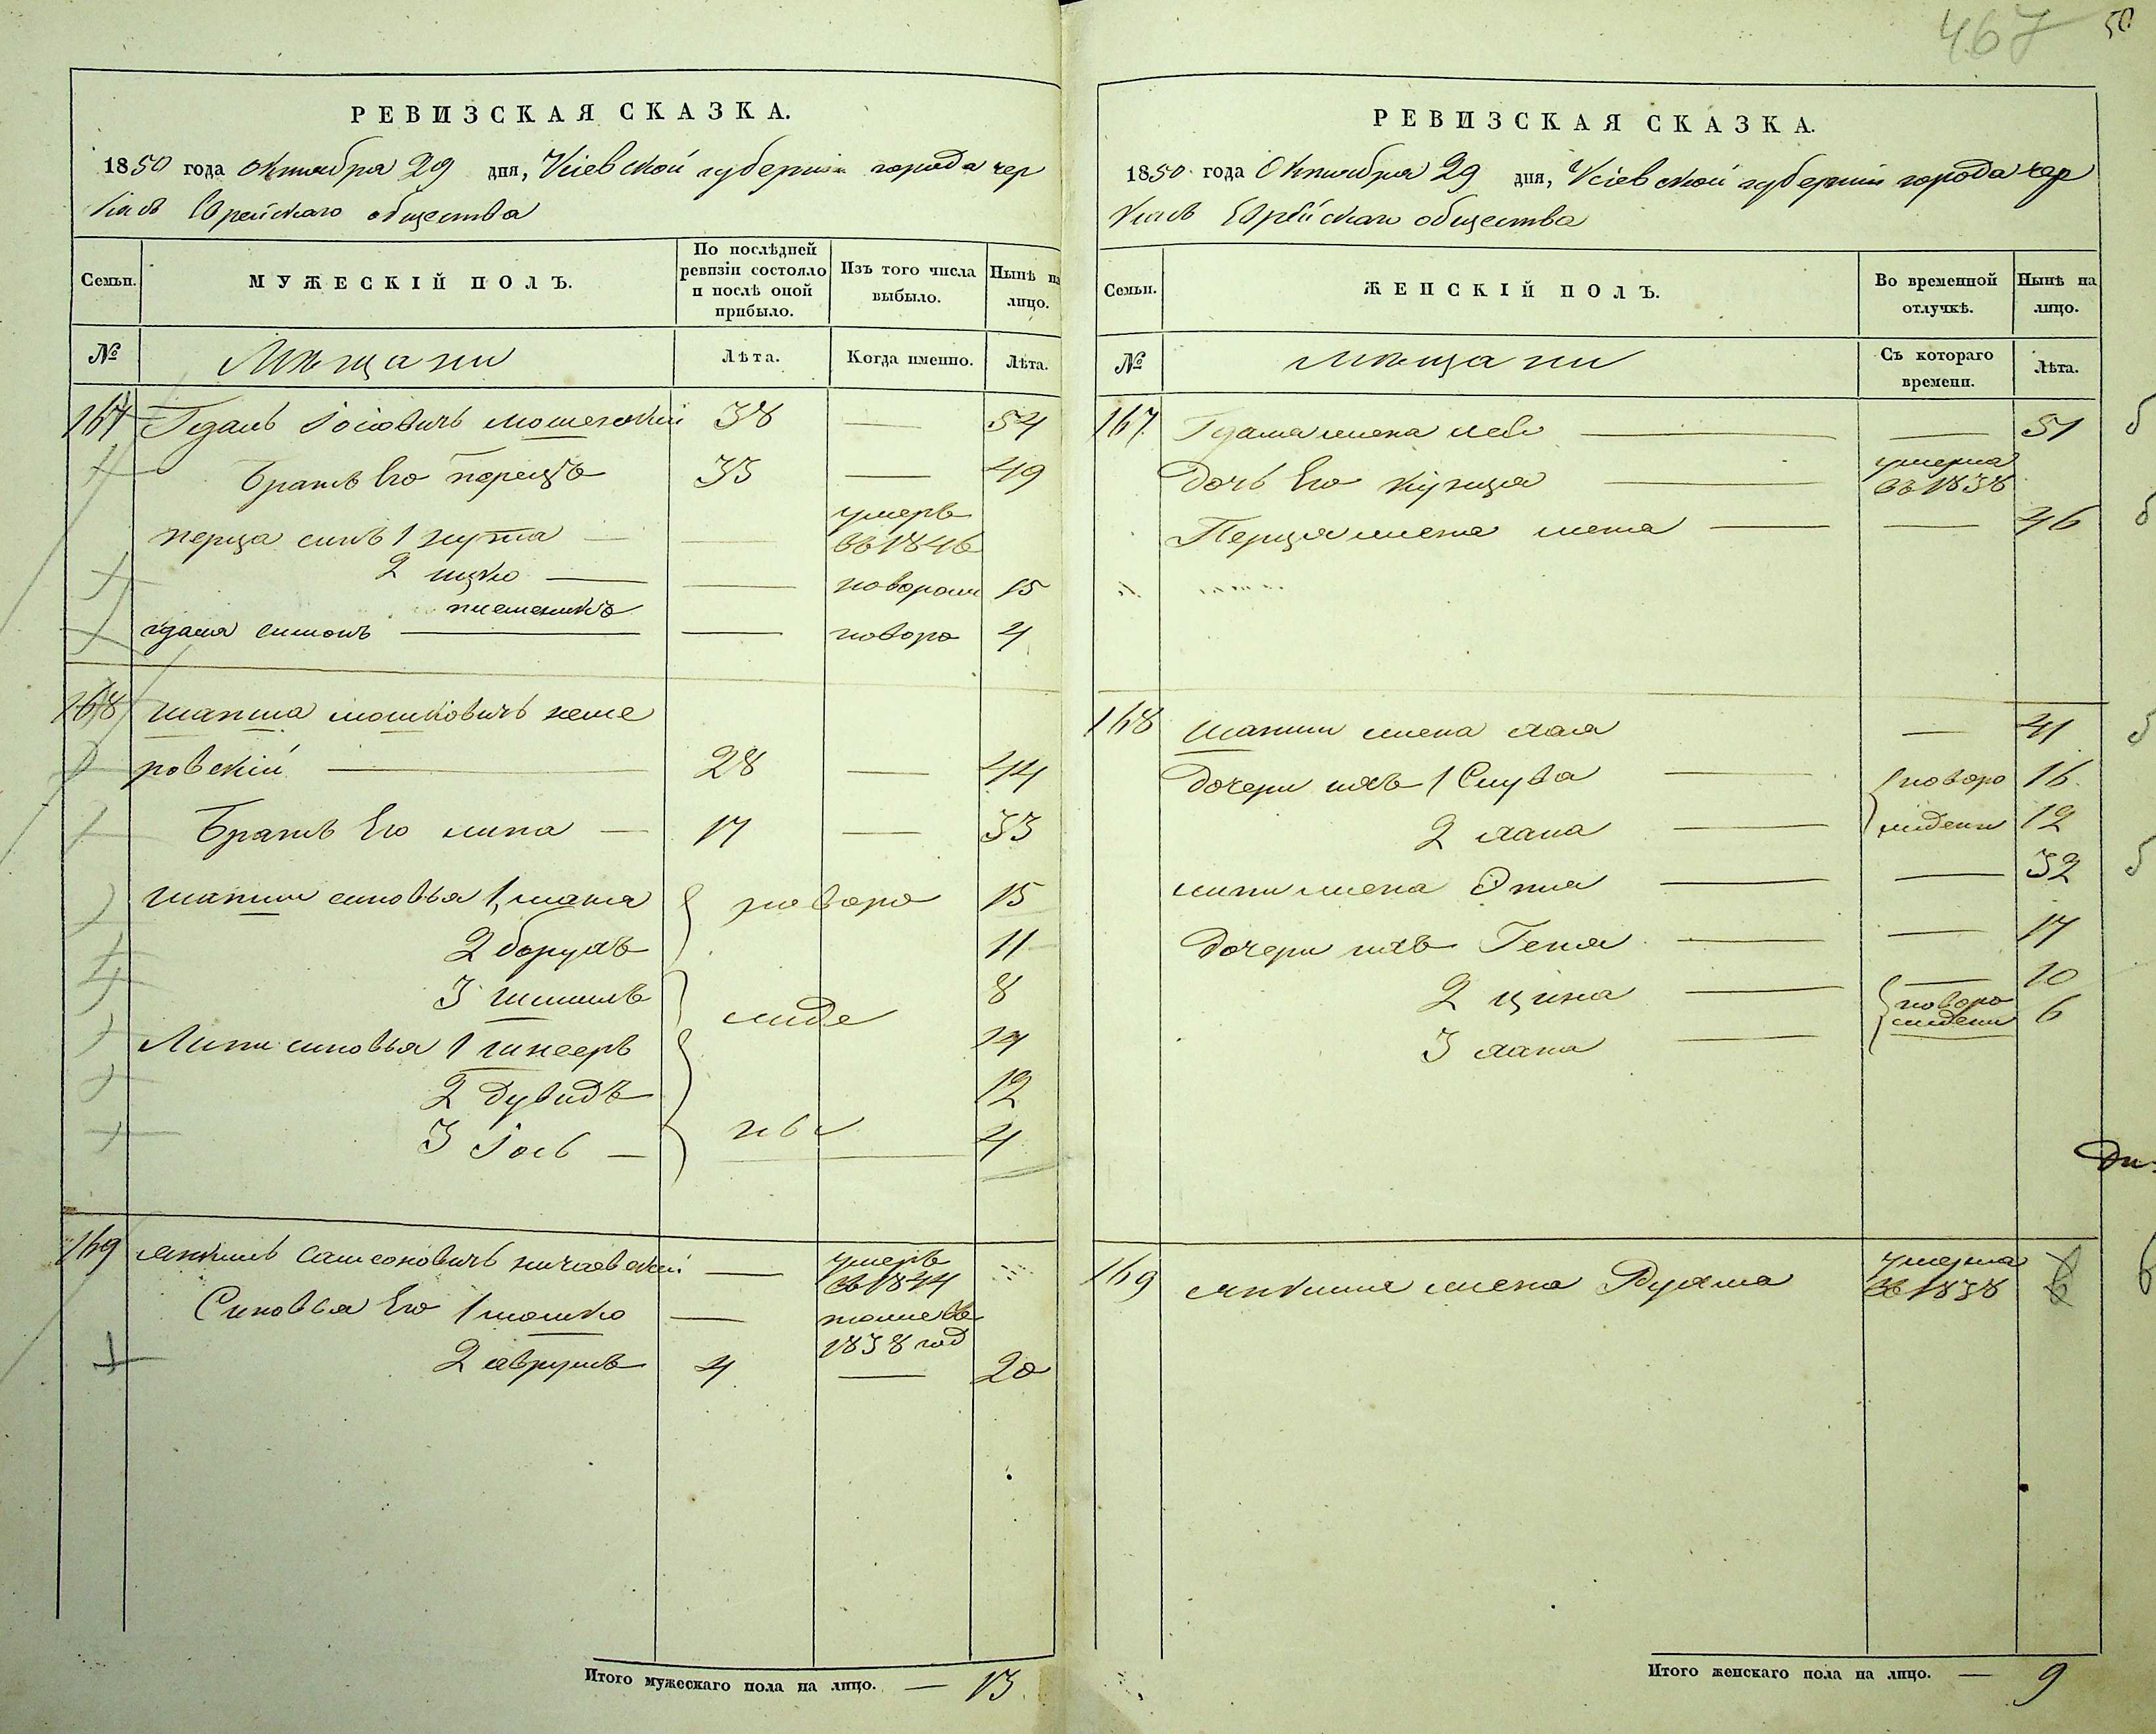 467 50
РЕВИЗСКАЯ СКАЗКА.
1850 года Октября 29 дня, Кіевской губерніи города чер
касъ Еврейскаго общества
Семьи.
МУЖЕСКІЙ ПОЛЪ.
По послѣдней
ревизіи состояло
и послѣ оной
прибыло.
Изъ того числа
выбыло.
Нынѣ на
лицо.
№ Мѣщани Лѣта. Когда именно. Лѣта.
167 Гдаль Іосіовичъ мошенскій 38 — 54
Братъ Его перецъ 33 — 49
умеръ
перца синъ 1 — — въ 1846
2 ицко — — новорож 15
племеникъ
гдаля симонъ — — новоро 4
168 шапша мошковичъ неше
ровскій — 28 — 44
Братъ Его липа — 17 — 33
шапши синовья 1 новоро 15
2 борухъ 11
3 8
Липи синовья 1 шнееръ 14
2 дувидъ 12
3 Іось — 4
169 янкиль самсоновичъ — умеръ въ 1844
Синовья Его 1 мошко — въ
1838 год
2 аврумъ 4 — 20
Итого мужескаго пола на лицо. — 13
РЕВИЗСКАЯ СКАЗКА.
1850 года Октября 29 дня, Кіевской губерніи города чер
касъ Еврейскаго общества
Семьи.
ЖЕНСКІЙ ПОЛЪ.
Во временной
отлучкѣ.
Нынѣ на
лицо.
№ мѣщани
Съ котораго
времени.
Лѣта.
167 Гдаля жена — — 51
умерла
Дочь Его — въ 1838
Перца жена — — 46
168 шапши жена хая — 41
Дочери ихъ 1 Слува — новоро 16
2 хана — жідени 12
липи жена Этля — — 32
Дочери ихъ Геня — — 17
2 ципа — — 10
новоро
жідени
3 хана — 6
умерла
169 янкиля жена въ 1838
Итого женскаго пола на лицо. — 9